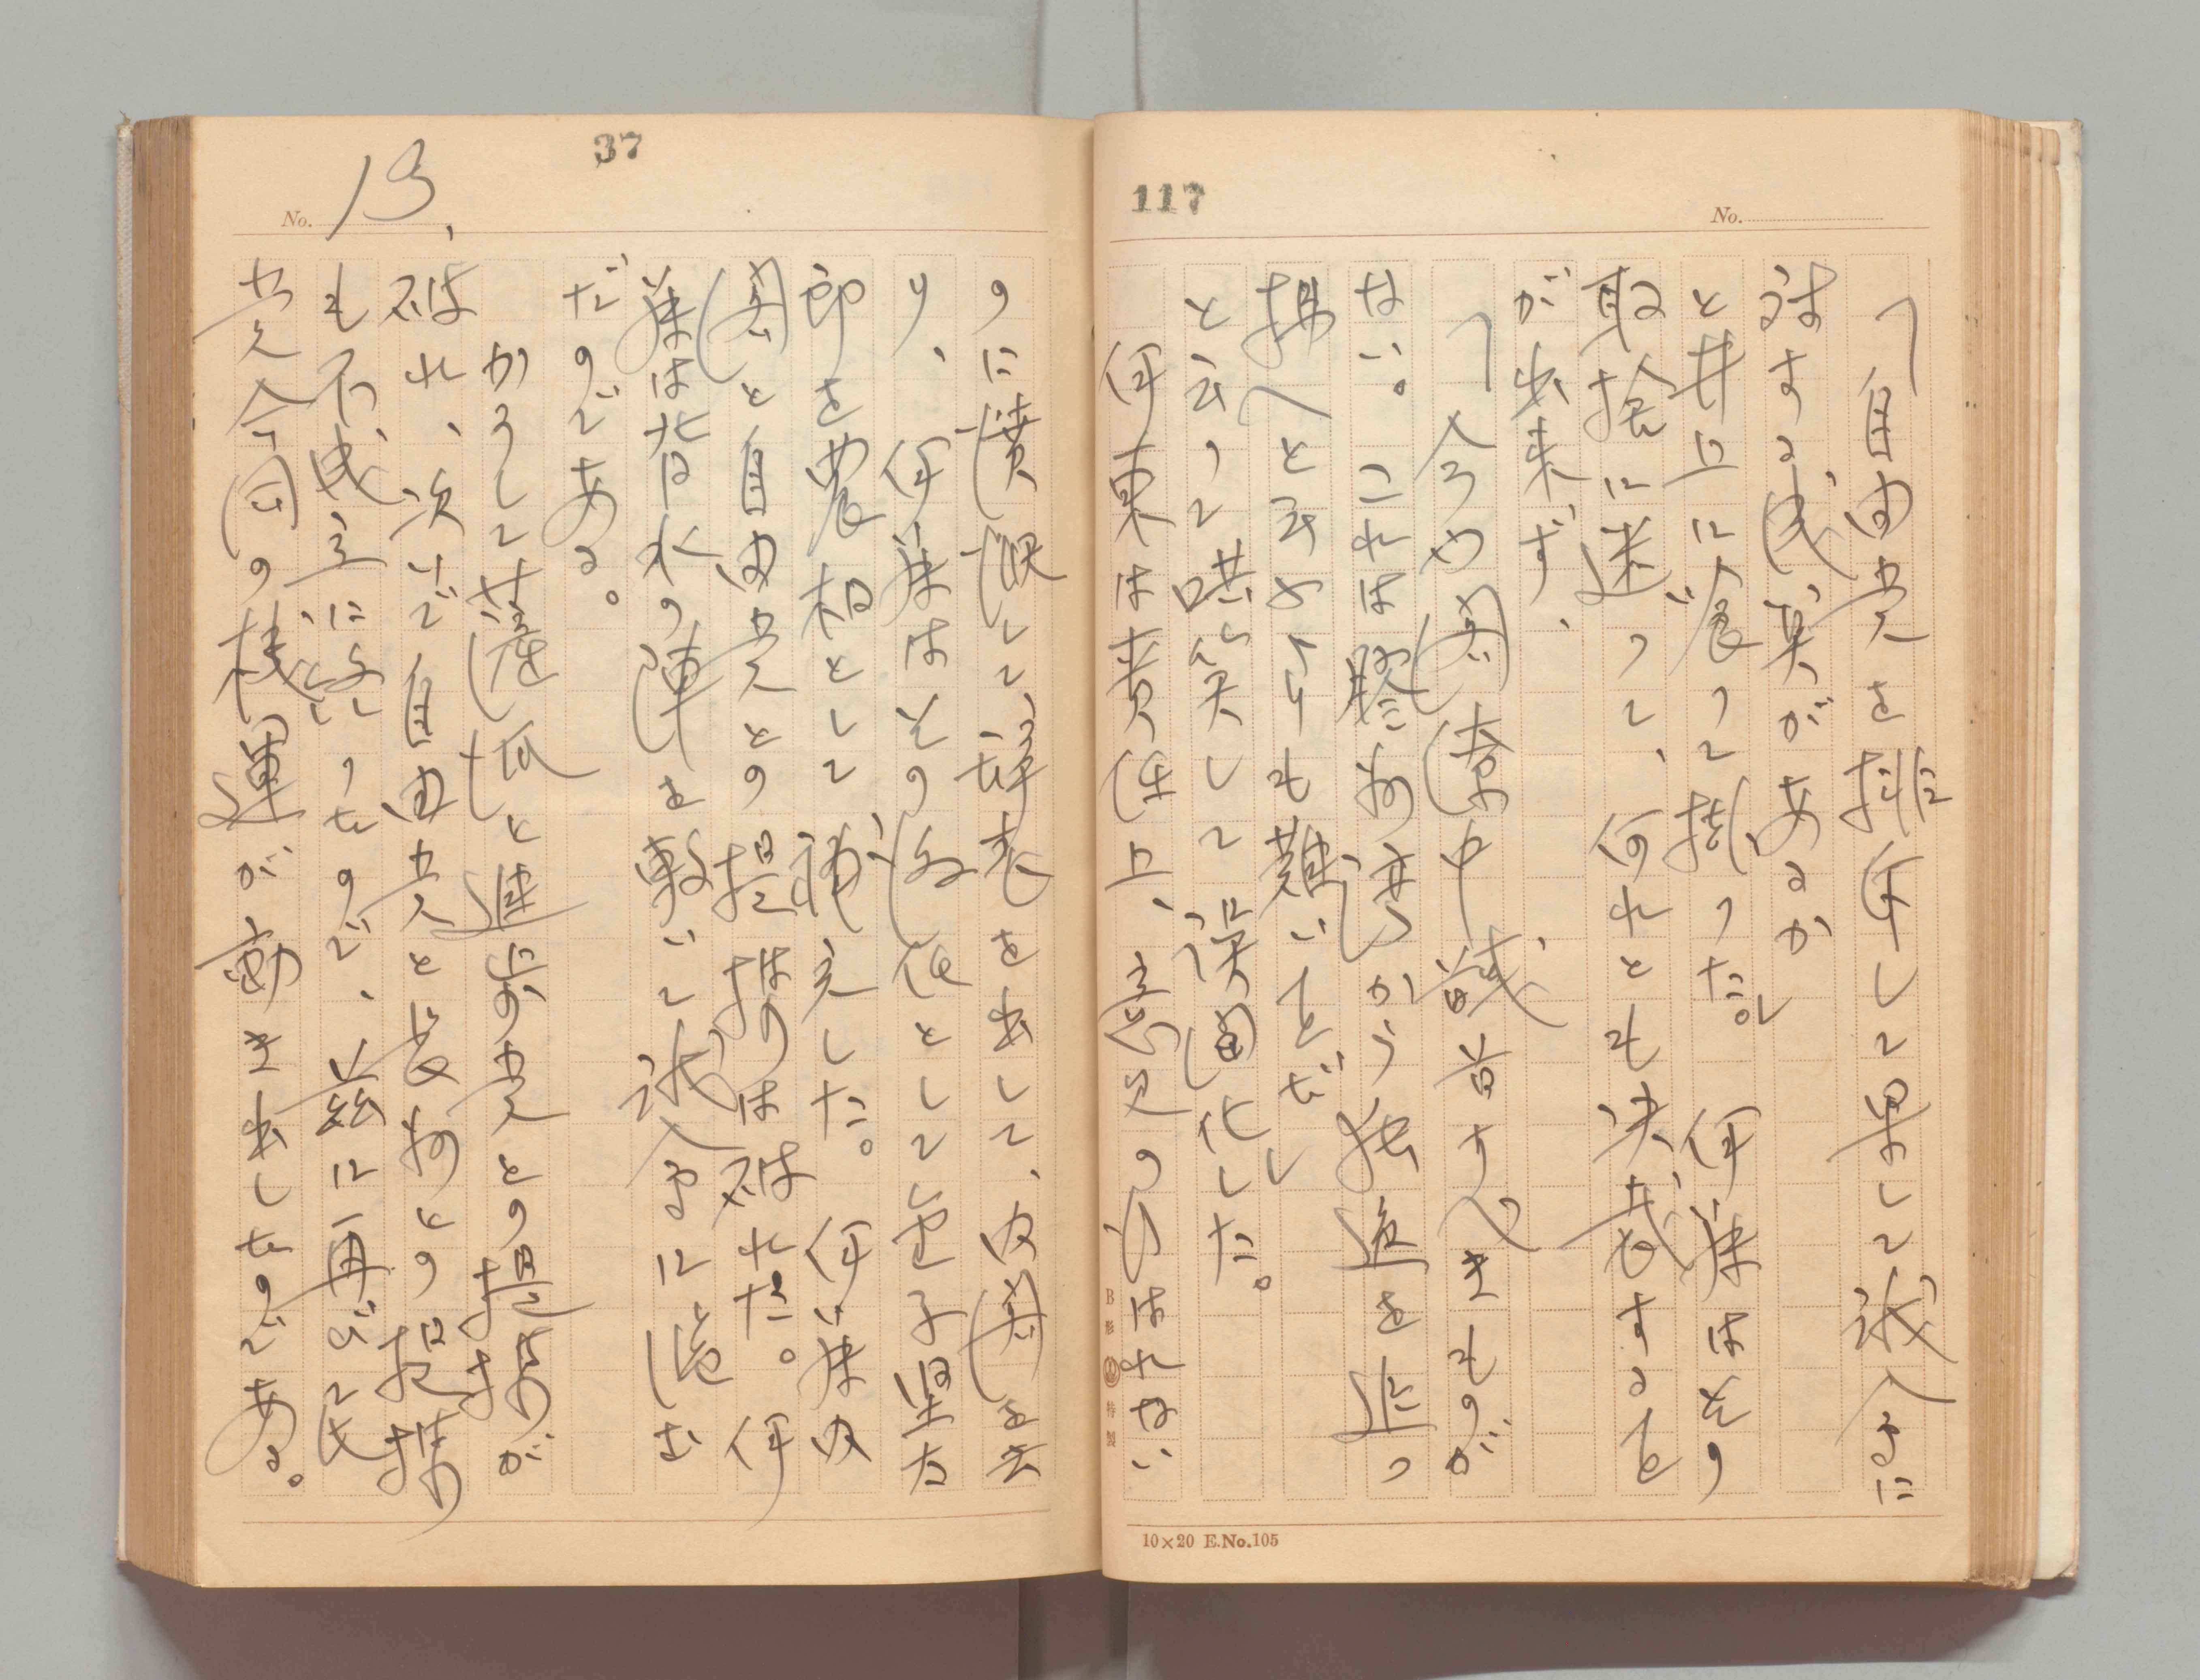 117
No.
「自由党を排斥して果して議会に
対する成算があるか」
と井上に喰って掛った。伊藤はその
取捨に迷って、何れとも決裁すること
が出来ず、
「今や閣僚中誠首すべきものが
ない。これは膠州湾から独逸を追っ
攘へと云ふよりも難いことだ」
と云って哄笑して誤魔化した。
伊東は責任上、意見の行はれない
B形 特製
10×20 E.No.105
37
No. 13、
のに憤慨して、辞表を出して、内閣を去
り、伊藤はその後任として金子堅太
郎を農相として補充した。伊藤内
閣と自由党との提携は破れた。伊
藤は背水の陣を敷いて議会に臨む
だのである。
かうして薩派と進歩党との提携が
破れ、次いで自由党と長州との提携
も不成立に終ったので、茲に再び民
党合同の機運が動き出したのである。